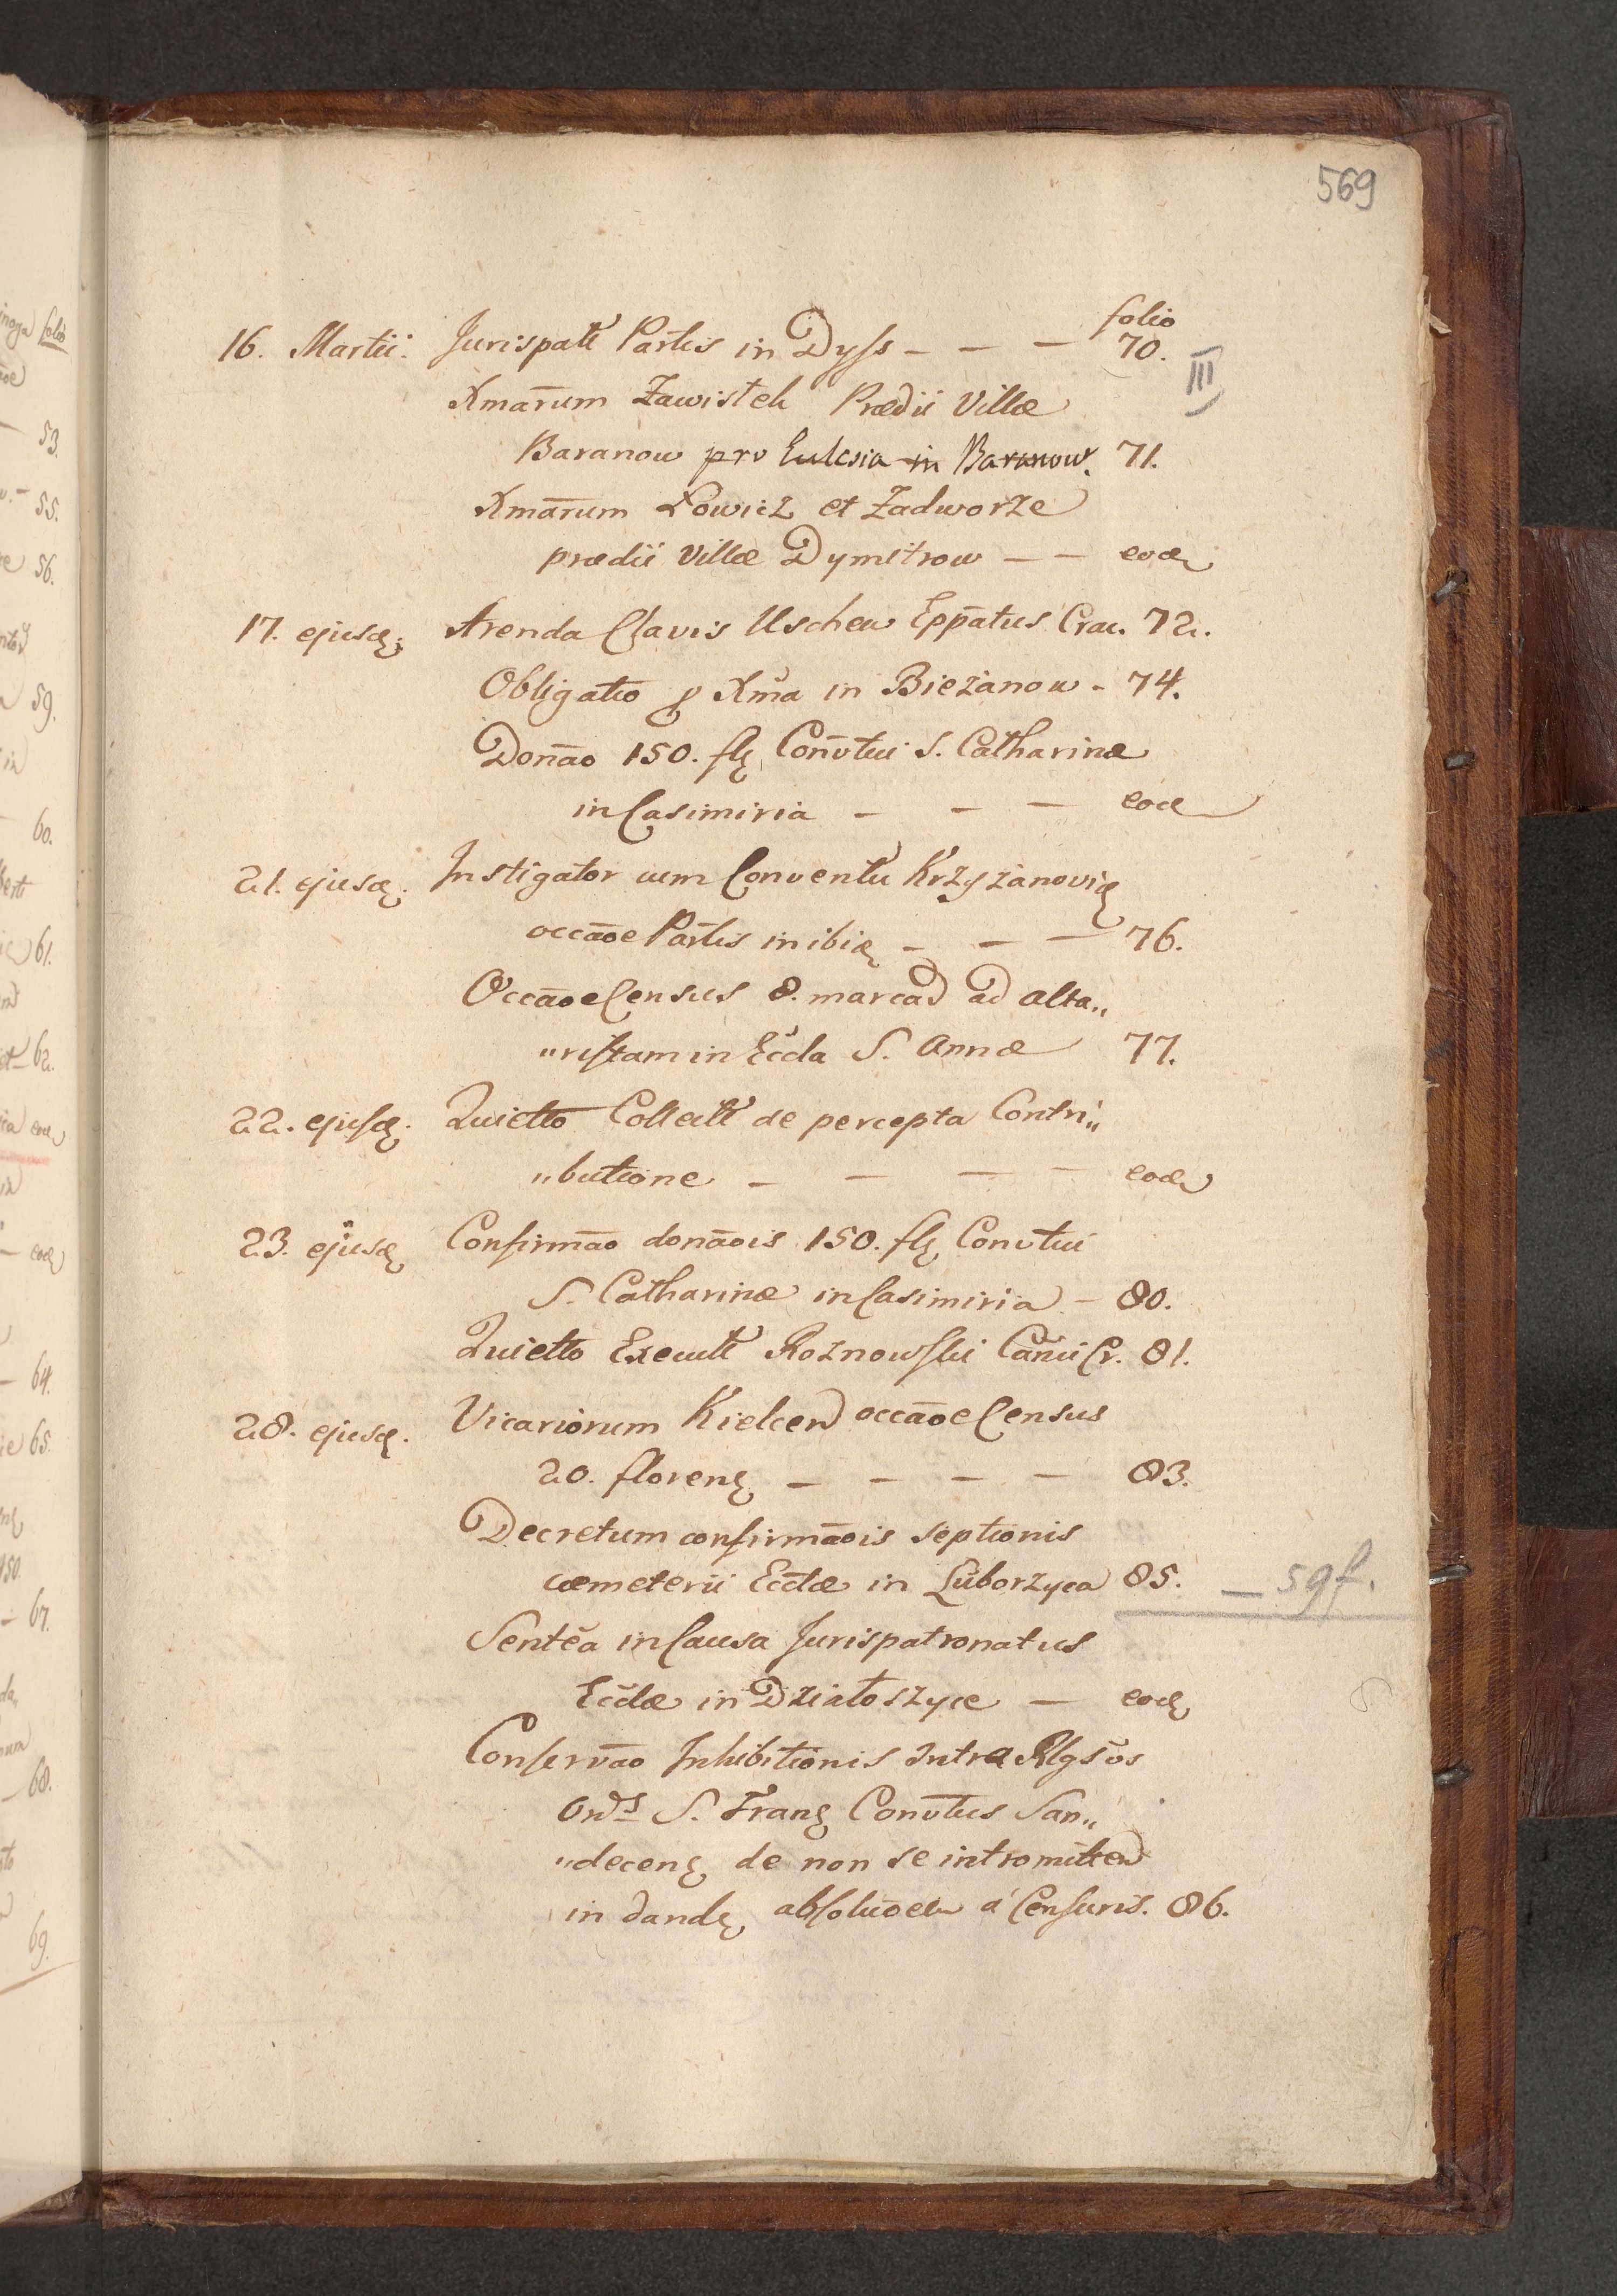 569
folio
16. Martii. Jurispatt Partis in Dyss - - - 70.
III
Xmārum Zawisteh Prædii Villæ
Baranow pro Eulesia in Baranow. 71.
Xmārum Łowicz et Zadworze
prædii Villæ Dymitrow - - eodę
17. ejusdę. Arenda Clavis Uschew Epp̄atus Crac. 72.
Obligatio p Xma in Bieżanow - 74.
Donāo 150. flę Conv̄tui S. Catharinæ
in Casimiria - - - eod
21. ejusdę. Instigator cum Conventu Krzyżanovię
occāoe Partis in ibidę - - - 76.
Occāoe Census 8. marcad ad alta„
„ristam in Eccla S. Annæ 77.
22. ejusdę. Quietto Collectt de percepta Contri„
„butione - - - - eodę
23. ejusdę Confirmāo donāois 150. flę Conv̄tui
S. Catharinæ in Casimiria - 80.
Quietto Execütt Roznowski Cañici Cr. 81.
28. ejusdę. Vicariorum Kielceń occāoe Census
20. florenę - - - - 83.
Decretum confirmāois septionis
cæmeterii Ecclæ in Luborzyca 85. — 59f.
Sentēa in Causa Jurispatronatus
Ecclæ in Działoszyce - eodę
Conservāo Inhibitionis intra Rlgsos
Ordˢ S. Franę Conv̄tus San„
„decenę de non se intromitteń
in dandę absoluōem á Censuris. 86.